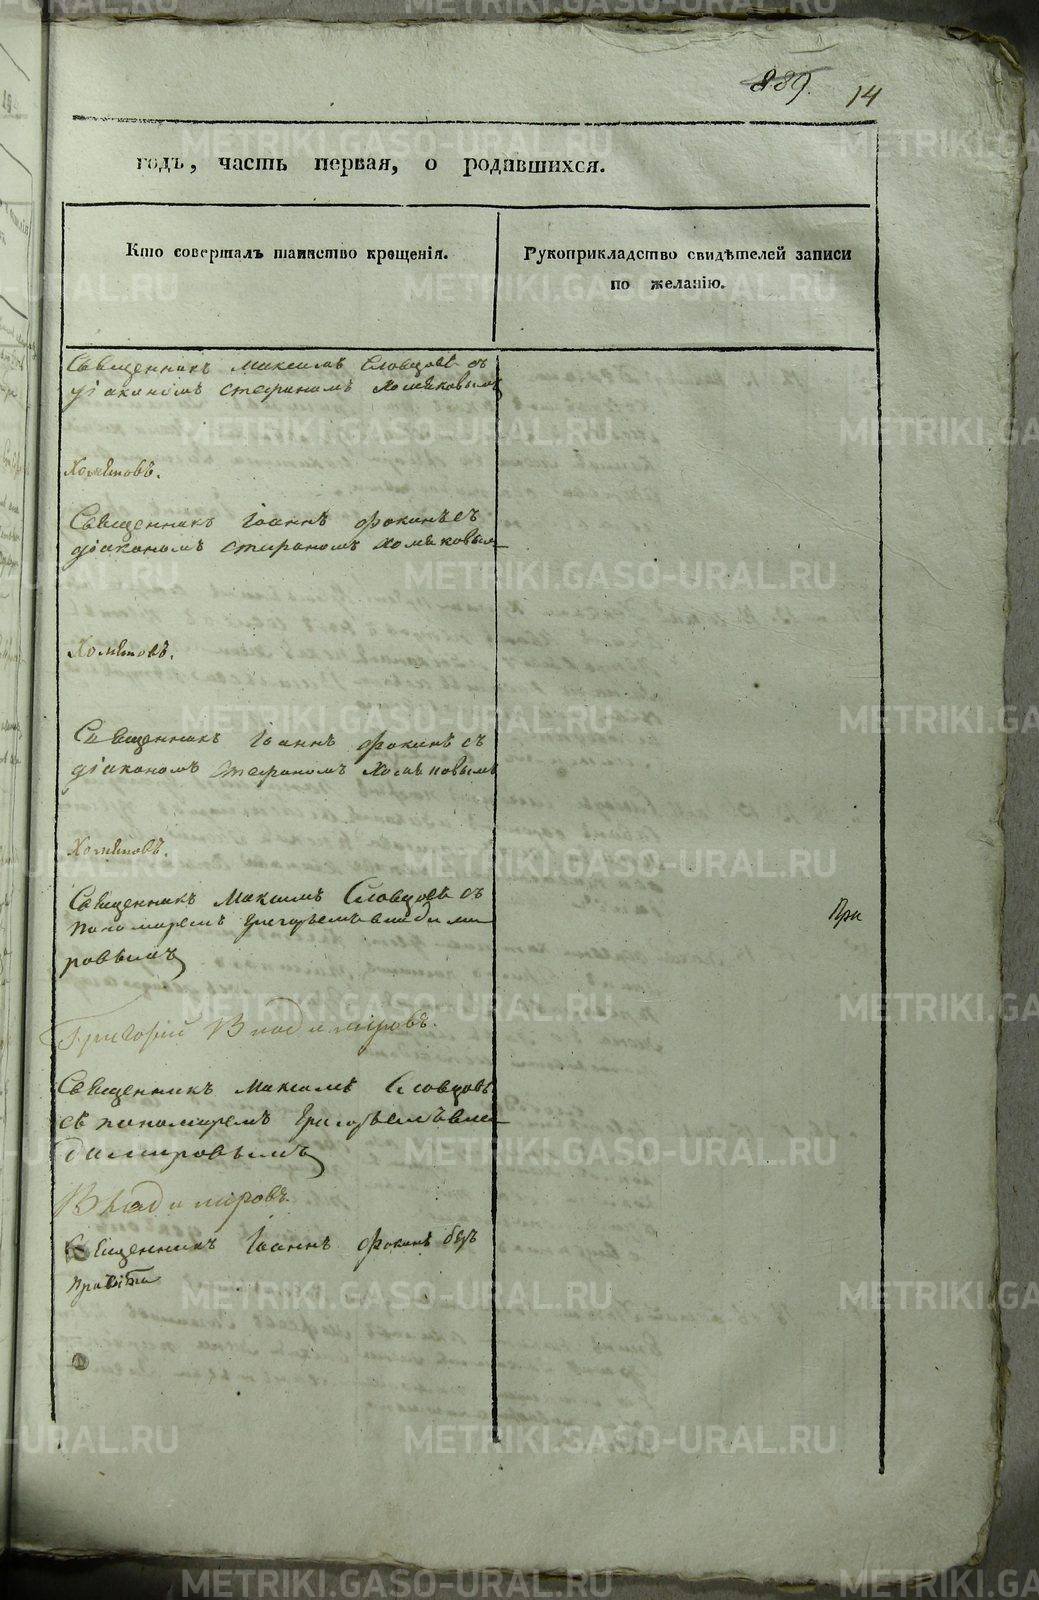 889. 14
годъ, часть первая, о родившихся.
Кто совершалъ таинство крещенія.
Рукоприкладство свидѣтелей записи
по желанію.
Священникъ Максимъ Словцовъ съ
діакономъ Стефаномъ Хомяковымъ
Священникъ Іоаннъ Фокинъ съ
діакономъ Стефаномъ Хомяковым
Священникъ Іоаннъ Фокинъ съ
діакономъ Стефаномъ Хомяковымъ
Священникъ Максимъ Словцовъ съ
пономаремъ Григорьемъ Влади ми
ровымъ
При
Григорій Владимировъ.
Священникъ Максимъ Словцовъ
съ пономаремъ Григорьемъ Вла
димировымъ
Владимировъ.
Священникъ Іоаннъ Фокинъ безъ
причта
METRIKI.GASO-URAL.RU